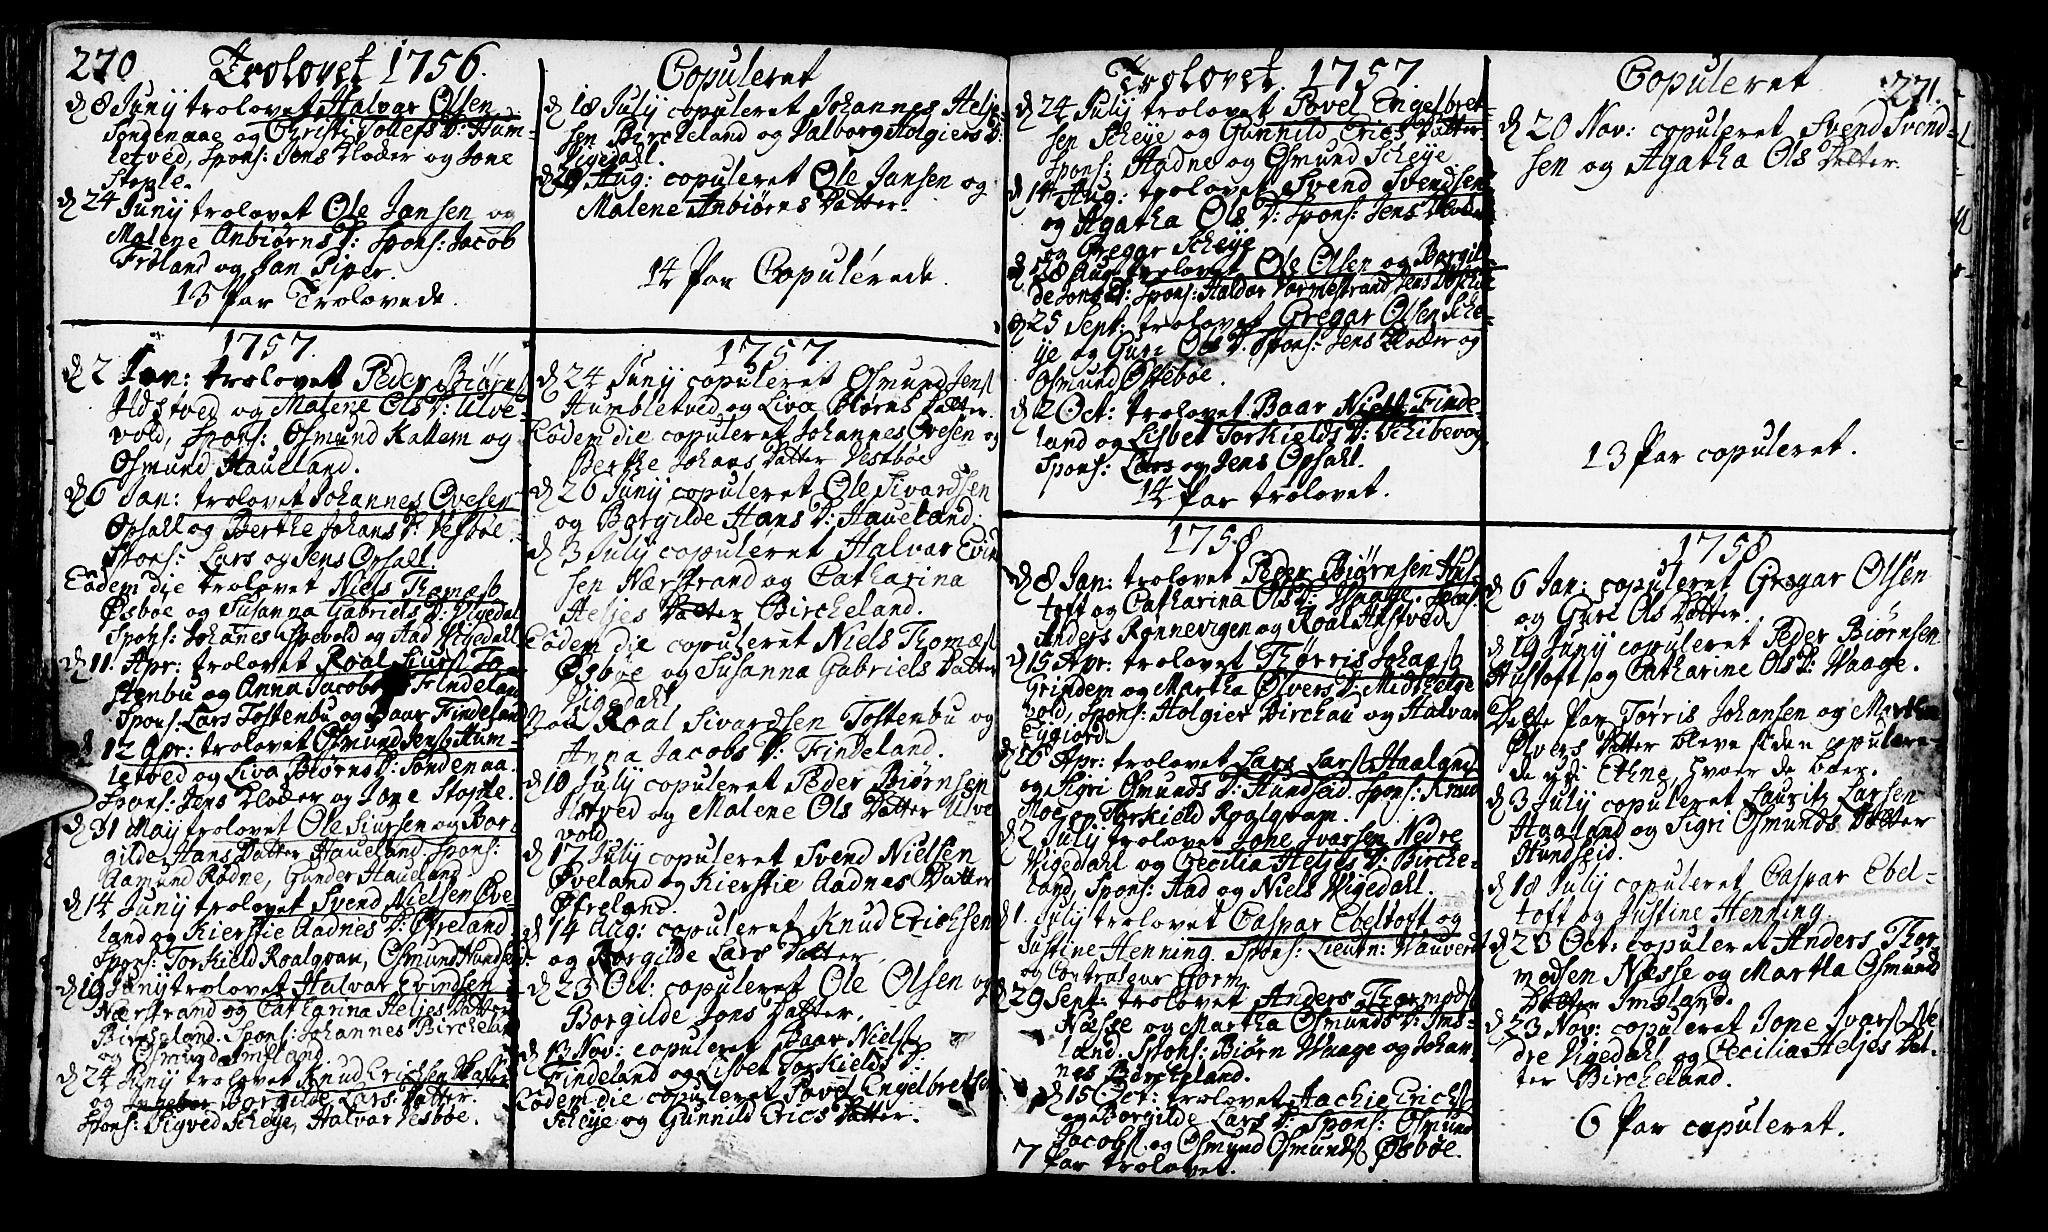 270 Trolovet 1756.
d 8 Junij trolovet Halvar Olsen
Søndenaae og Christi Tollefs D: Hum-
letved, Spons: Jens Kloder og Jone
Stople.
d 24 Junij trolovet Ole Jansen og
Malene Anbiørns D: Spons: Jacob
Frøland og Jan Piper.
13 Par Trolovede.
1757.
d 2 Jan: trolovet Peder Biørns
Udstved og Malene Ols D: Ulve-
vold, Spons: Osmund Kallem og
Osmund Haueland.
d 6 Jan: trolovet Johannes Ovesen
Opsall og Berthe Johans D: Vesbøe.
Spons: Lars og Jens Opsall
Eodem die trolovet Niels Thomæs
Øsbøe og Susanna Gabriels D: Vigedal
Spons: Johanes Espevold og Aad Vigedahl
d 11. Apr: trolovet Roal Siurs To-
stenbu og Anna Jacobs Findeland
Spons: Lars Tostenbu og Baar Findeland
d 12 Apr: trolovet Osmund Jens Hum-
letved og Liva Biørns D: Søndenaa.
Spons: Jens Kloder og Jone Stople.
d 31 Maij trolovet Ole Siursen og Bor-
gilde Hans Datter Haueland Spons:
Aamund Rødne, Gunder Haueland
d 14 Junij trolovet Svend Nielsen Øve-
land og Kierstie Aadnes D: Øfreland
Spons: Torkield Roalqvam, Osmund Hundseid.
d 19 Junij trolovet Halvar Evindsen
Nærstrand og Catharina Heljes Datter
Bircheland. Spons: Johannes Birchelan
og Osmund Imsland.
d 24 Junij trolovet Knud Erichsen
og Borgilde Lars Datter.
Spons: Sigved Scheye, Halvar Vesbøe.
Copuleret
d 18 Julij copuleret Johannes Helje-
sen Bircheland og Valborg Holgiers D:
Vigedahl.
d 29 Aug: copuleret Ole Jansen og
Malene Anbiørns Datter.
14 Par Copulerede.
1757
d 24 Junij copuleret Osmund Jens
Humbletved og Liva Biørns Datter.
Eodem die copuleret Johannes Ovesen og
Berthe Johans Datter Vestbøe
d 26 Junij copuleret Ole Sivardsen
og Borgilde Hans D: Haueland.
d 3 Julij copuleret Halvar Evind
sen Nærstrand og Catharina
Heljes Datter Bircheland.
Eodem die copuleret Niels Thomæs
Øsbøe og Susanna Gabriels Datter
Vigedahl
Roal Sivardsen Tostenbu og
Anna Jacobs D: Findeland.
d 10 Julij copuleret Peder Biørnsen
Ustved og Malene Ols Datter Ulve
vold.
d 17 Julij copuleret Svend Nielsen
Øveland og Kierstie Aadnes Datter
Øfreland.
d 14 Aug: copuleret Knud Erichsen
og Borgilde Lars Datter.
d 23 Oct: copuleret Ole Olsen og
Borgilde Jons Datter.
d 13 Nov: copuleret Baar Niels
Findeland og Lisbet Torkields D:
Eodem die copuleret Povel Engelbretsen
Scheye og Gunnild Erics Datter.
Trolovet 1757.
d 24 Julij trolovet Povel Engelbret-
sen Scheye og Gunnild Erics Datter
Spons: Aadne og Osmund Scheye
d 14 Aug: trolovet Svend Svendsen
og Agatha Ols D: Spons: Jens Kloder
og Gregar Scheye
d 28 Aug: trolovet Ole Olsen og Borgil-
de Jons D: Spons: Haldor Varmestrand Jens
d 25 Sept: trolovet Gregar Olsen Sche-
ye og Guri Ols D: Spons: Jens Kloder og
Osmund Østebøe.
d 2 Oct: trolovet Baar Niels Finde-
land og Lisbet Torkields D: Schibevog
Spons: Lars og Jens Opsahl.
14 Par trolovet.
1758
d 8 Jan: trolovet Peder Biørnsen Hus-
toft og Catharina Ols D: Waage. Spons:
Anders Rønnevigen og Roal Ustved
d 15 Apr: trolovet Thørris Johans
Grindem og Martha Ølvers D: Midthelge
vold, Spons: Holgier Birchau og Halvar
Eygiord
d 16 Apr: trolovet Lars Lars Haaland
og Sigri Osmunds D: Hundseid. Spons: Knud
Moe og Torkield Roalqvam.
d 2 Julij trolovet Jone Ivarsen Nedre
Vigedahl og Cecilia Heljes D: Birche-
land, Spons: Aad og Niels Vigedahl.
d 1. Julij trolovet Caspar Ebeltoft og
Justine Henning. Spons: Lieutn: Hauverdt
og Controleur Gorm.
d 29 Sept: trolovet Anders Thormods
Næsse og Martha Osmunds D: Ims-
land. Spons: Biørn Waage og Johan-
nes Bircheland.
d 15 Oct: trolovet Aachie Erichs
og Borgilde Lars D: Spons: Osmund
Jacobs og Osmund Osmunds Øsbøe.
7 Par trolovet.
Copuleret 271.
d 20 Nov: copuleret Svend Svend-
sen og Agatha Ols Datter.
13 Par copuleret.
1758
d 6 Jan: copuleret Gregar Olsen
og Guri Ols Datter.
d 19 Junij copuleret Peder Biørnsen
Hustoft og Catharine Ols D: Waage.
Dette Par Tørris Johansen og Martha
Ølvers Datter bleve siden copulere-
de udi Ethne, hvor de boer.
d 3 Julij copuleret Lauritz Larsen
Haaland og Sigri Osmunds Datter
Hundseid.
d 18 Julij copuleret Caspar Ebel-
toft og Justine Henning.
d 23 Oct: copuleret Anders Thor-
modsen Næsse og Martha Osmunds
Datter Imsland.
d 23 Nov: copuleret Jone Ivars Ne-
dre Vigedahl og Cecilia Heljes Dat-
ter Bircheland.
6 Par copuleret.